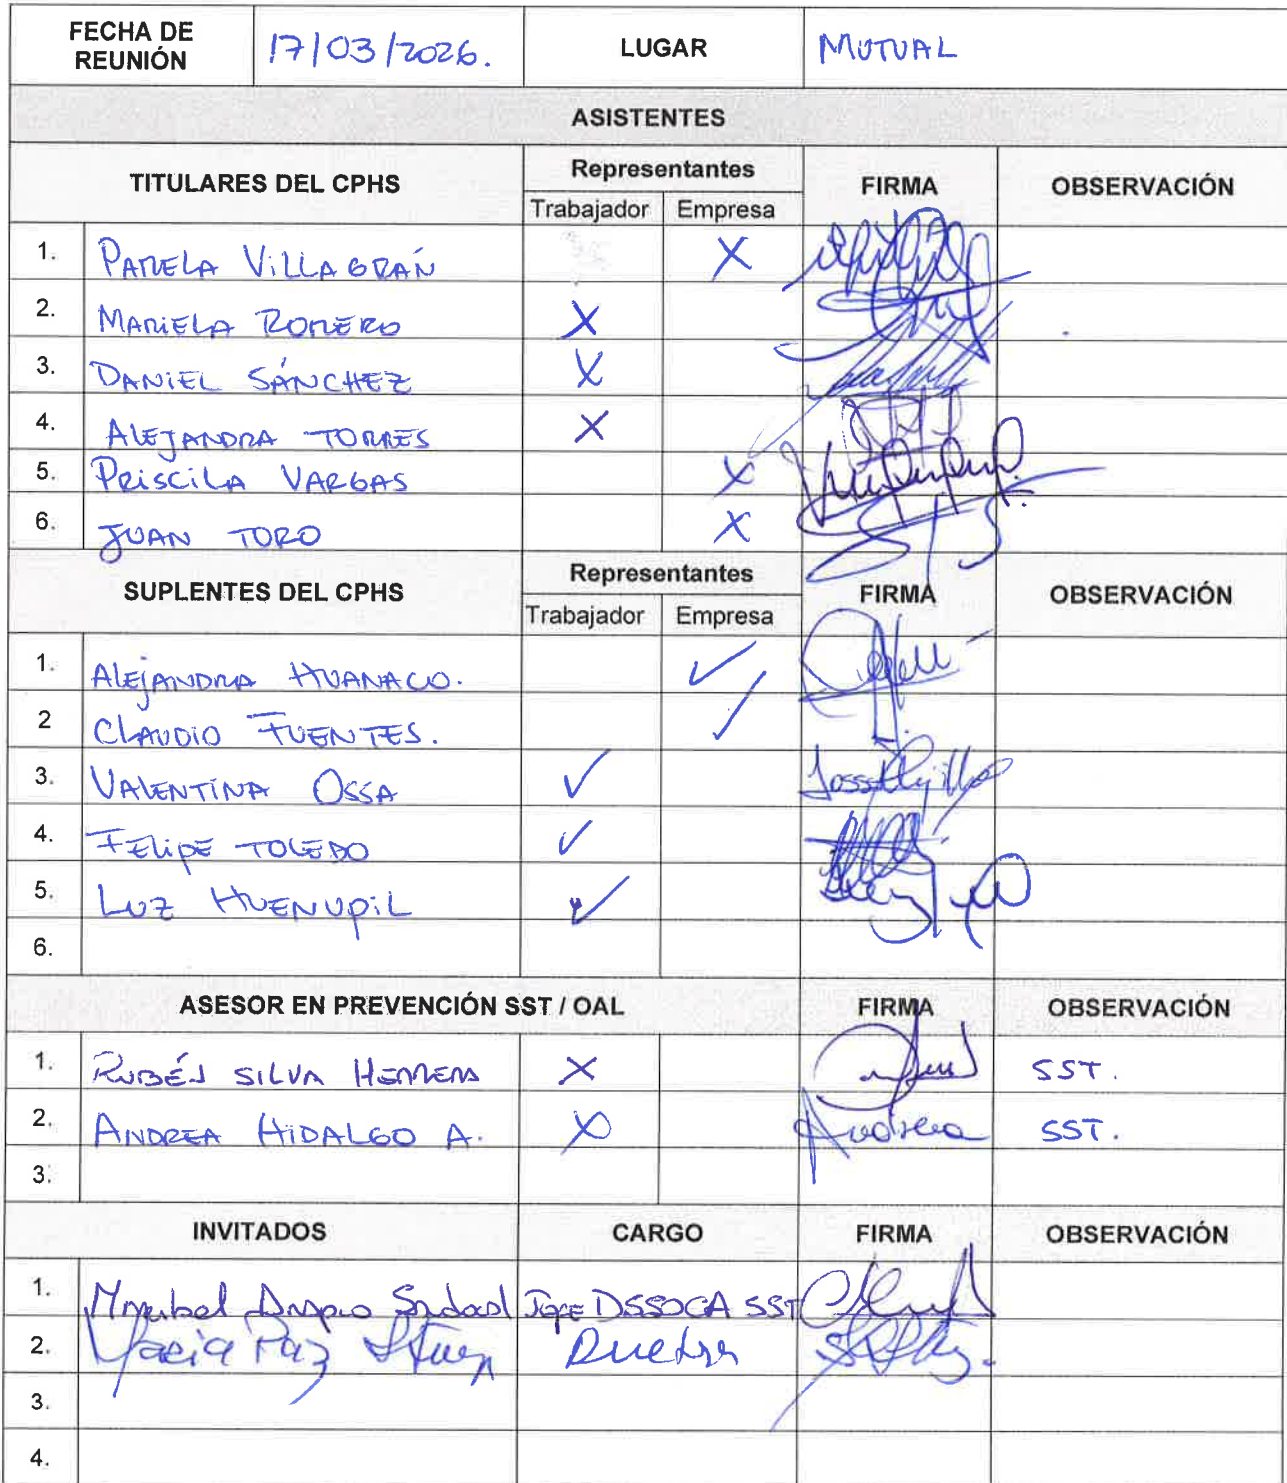 FECHA DE REUNIÓN 17/03/2026. LUGAR MUTUAL
ASISTENTES
TITULARES DEL CPHS Representantes FIRMA OBSERVACIÓN
Trabajador Empresa
1. PAMELA VILLAGRÁN X
2. MARIELA ROMERO X
3. DANIEL SÁNCHEZ X
4. ALEJANDRA TORRES X
5. PRISCILA VARGAS X
6. JUAN TORO X
SUPLENTES DEL CPHS Representantes FIRMA OBSERVACIÓN
Trabajador Empresa
1. ALEJANDRA HUANACO. ✓
2 CLAUDIO FUENTES. ✓
3. VALENTINA OSSA ✓
4. FELIPE TOLEDO ✓
5. LUZ HUENUPIL ✓
6.
ASESOR EN PREVENCIÓN SST / OAL FIRMA OBSERVACIÓN
1. RUBÉN SILVA HERRERA X SST.
2. ANDREA HIDALGO A. X Andrea SST.
3.
INVITADOS CARGO FIRMA OBSERVACIÓN
1. JEFE DSSOCA SST
2. María Paz
3.
4.